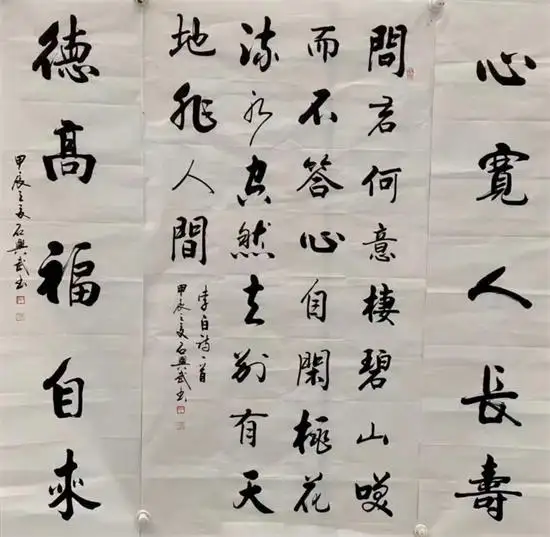 心寬人長壽
問君何意棲碧山咲
而不答心自閑桃花
流水窅然去別有天
地非人間
李白詩一首
甲辰之夏石興武書
德高福自來
甲辰之夏石興武書